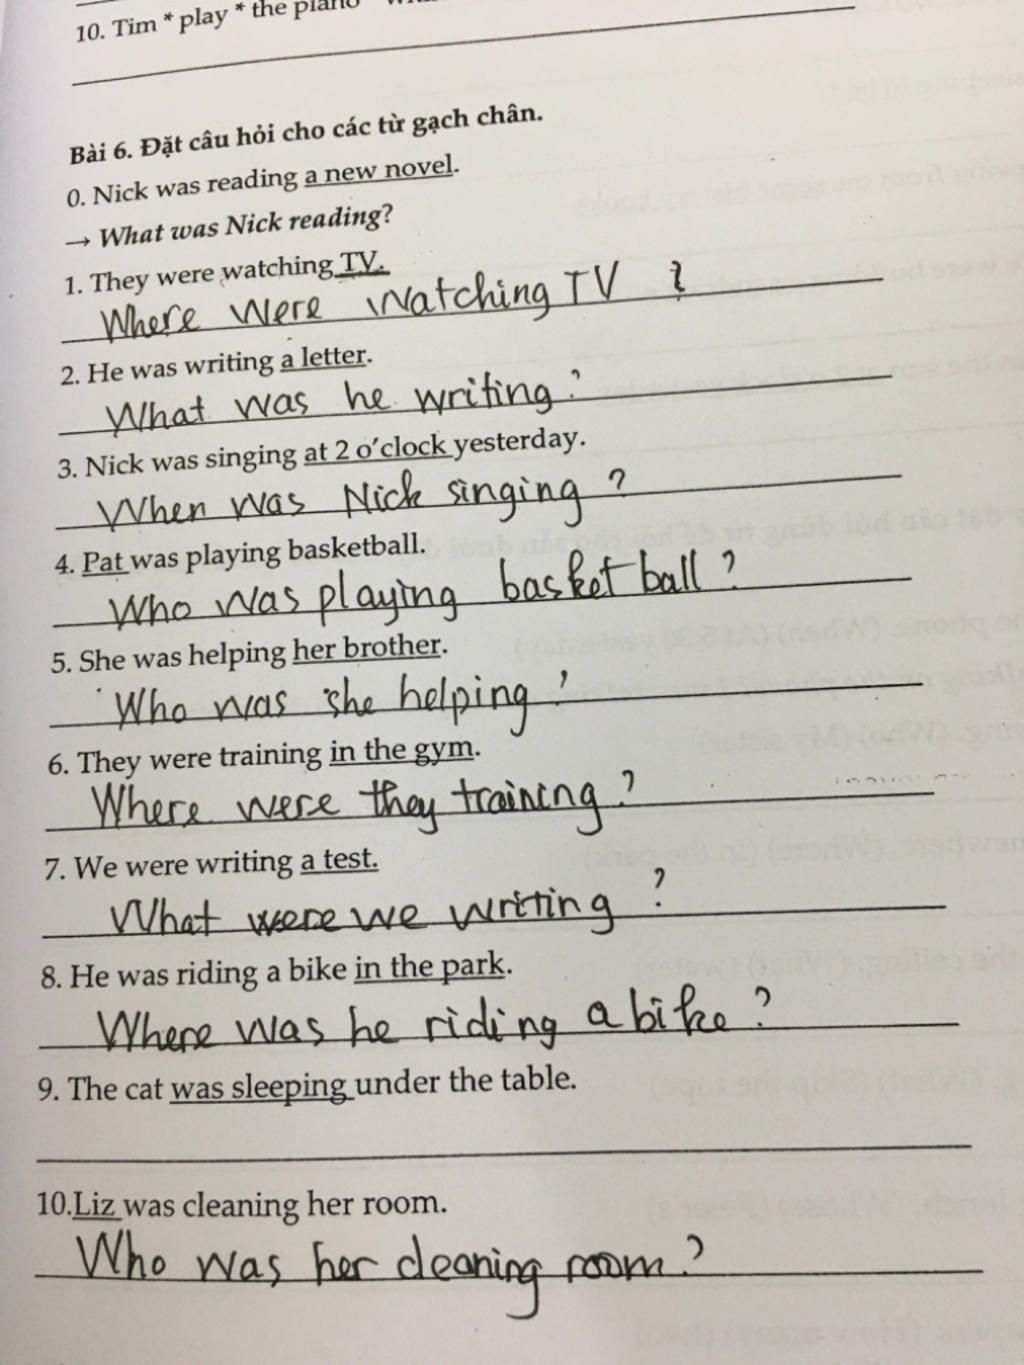 10. Tim * play * the piano
Bài 6. Đặt câu hỏi cho các từ gạch chân.
0. Nick was reading a new novel.
→ What was Nick reading?
1. They were watching TV.
Where were watching TV ?
2. He was writing a letter.
What was he writing ?
3. Nick was singing at 2 o'clock yesterday.
When was Nick singing ?
4. Pat was playing basketball.
Who was playing basket ball ?
5. She was helping her brother.
Who was she helping ?
6. They were training in the gym.
Where were they training ?
7. We were writing a test.
What were we writing ?
8. He was riding a bike in the park.
Where was he riding a bike ?
9. The cat was sleeping under the table.
10.Liz was cleaning her room.
Who was her cleaning room ?